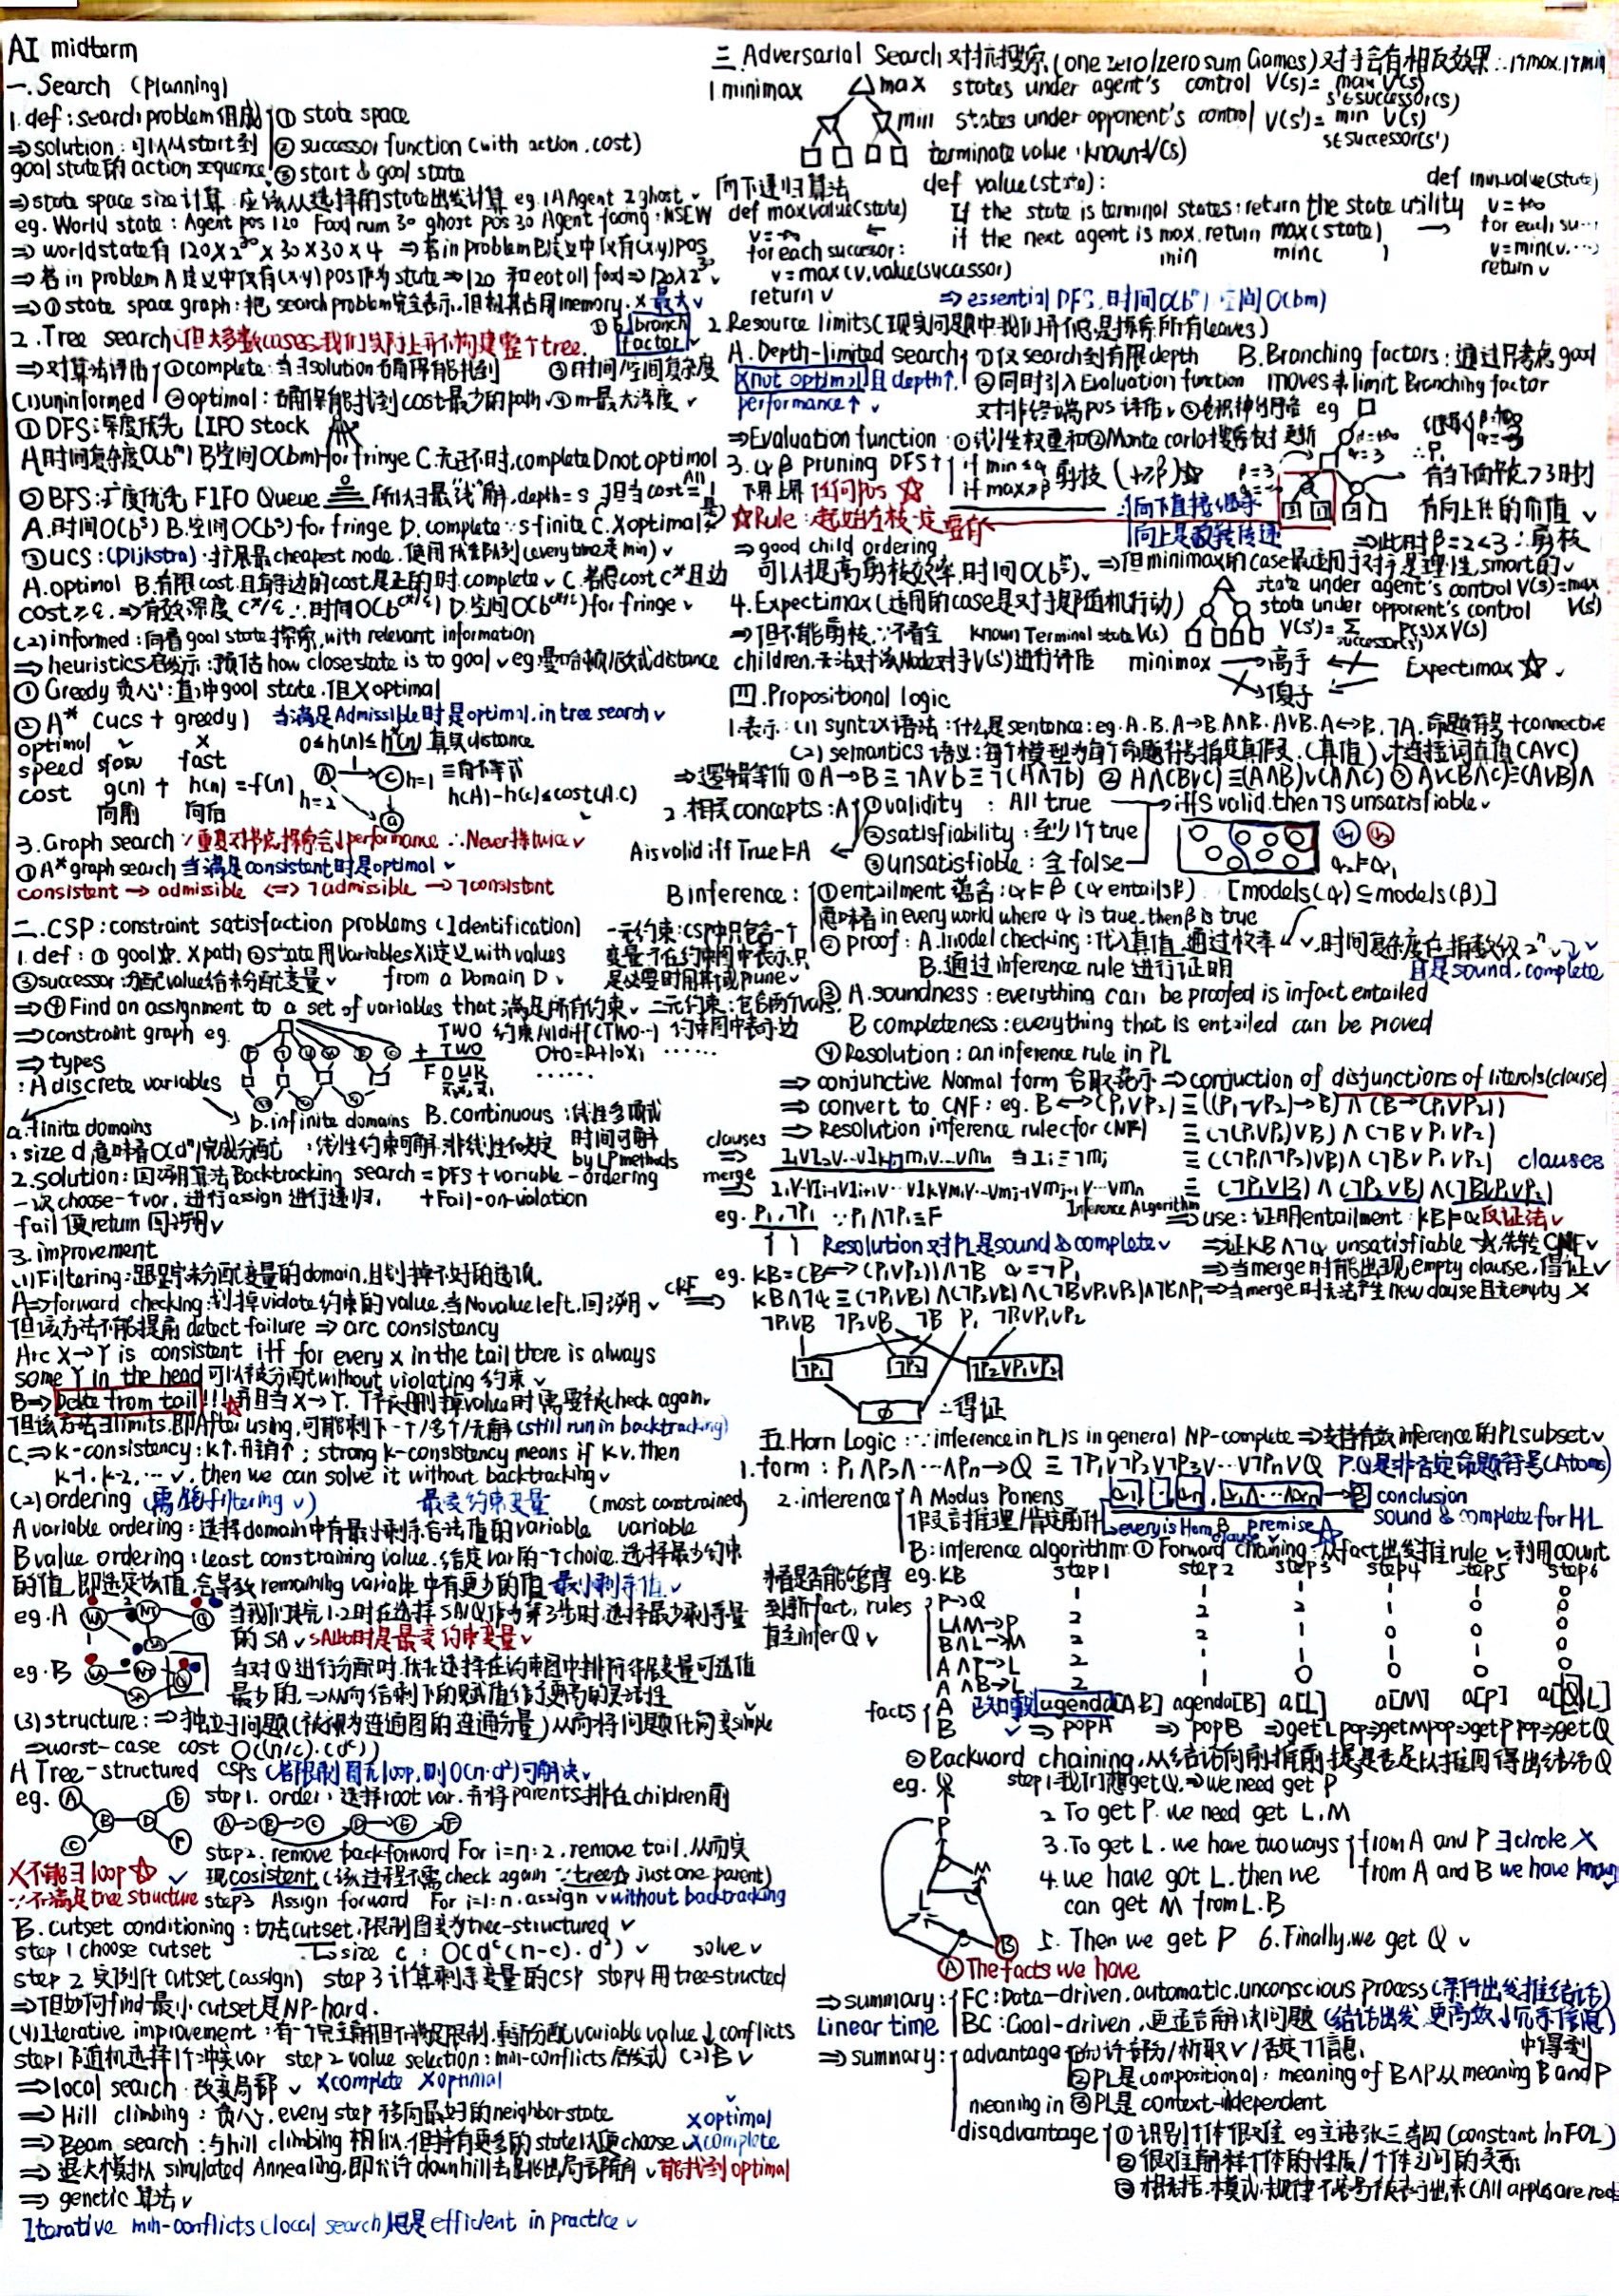 AI midterm
一.Search (Planning)
1.def:search problem组成 ① state space
⇒solution:可以从start到 ② successor function (with action.cost)
goal state的action sequence. ③ start & goal state
⇒state space size计算 应该从选择的state出发计算 eg.1个Agent 2ghost
eg. World state : Agent pos 120 Food num 30 ghost pos 30 Agent facing:NSEW
⇒ world state有 120×2³⁰×30×30×4 ⇒若in problem B定义中仅有(x.y)pos
⇒若in problem A定义中仅有(x.y)pos作为state⇒120 和eat all food⇒120×2³⁰
⇒①state space graph:把search problem完全表示.但极其占用memory.×最大
2.Tree search 但大多数cases我们实际上并不构建整个tree. ① b:branch factor
⇒对算法评估 ①complete:当∃solution确保能找到 ③时间/空间复杂度
(1)uninformed ②optimal:确保能找到cost最少的path ③m最大深度
① DFS:深度优先 LIFO stack
A.时间复杂度O(bᵐ) B空间O(bm)for fringe C.无环时.complete D not optimal
② BFS:广度优先 FIFO Queue 所以∃最"浅"解.depth=s 担当cost=1
A.时间O(bˢ) B.空间O(bˢ) for fringe D. complete∵s finite C.Xoptimal
③UCS:(Dijkstra)·扩展最cheapest node.使用优先队列(every time是min)
A.optimal B.有限cost且每边的cost是正的时.complete C.若得cost C*且边
cost≥ε.⇒有效深度 C*/ε∴时间O(b^(C*/ε)) D.空间O(b^(C*/ε))for fringe
(2)informed:向着goal state探索.with relevant information
⇒heuristics启发示:预估how close state is to goal eg:曼哈顿/欧式distance
① Greedy 贪心:直冲goal state.但Xoptimal
② A* (ucs + greedy) 当满足Admissible时是optimal.in tree search
optimal ✓ × 0≤h(n)≤h*(n)真实distance
speed slow fast A C h=1 三角不等式
cost g(n) + h(n) =f(n) h=2 h(A)-h(c)≤cost(A.C)
向前 向后 G
3.Graph search ∵重复对节点探索会↓performance ∴Never扩twice
①A*graph search 当满足consistent时是optimal
consistent → admissible <=> ¬admissible → ¬consistent
二.CSP:constraint satisfaction problems (Identification)
一元约束:CSP中只包含一个变量 不在约束图中表示.只是必要时用其域prune
1.def:① goal Xpath ②state用Variables Xi定义with values
③successor:分配value给未分配变量 from a Domain D
⇒④Find an assignment to a set of variables that满足所有约束 二元约束:包含两个vars.
⇒constraint graph eg. TWO 约束Alldiff(TWO…) 约束图中表示边
+ TWO O+O=R+10X₁ ……
FOUR ……
⇒types
:A discrete variables
a.finite domains b.infinite domains B.continuous
:size d意味着O(dⁿ)完成分配 :线性约束可解.非线性不决定 时间可解 by LP methods
2.solution:回溯算法Backtracking search = DFS+variable-ordering
一次choose一个var.进行assign进行递归. +Fail-on-violation
fail便return回溯
3. improvement
(1)Filtering:跟踪未分配变量的domain.且划掉不好的选项.
A⇒forward checking:划掉violate约束的value.当No value left.回溯
但该方法不能提前detect failure ⇒ arc consistency
Arc X→Y is consistent iff for every x in the tail there is always
some Y in the head可以被分配without violating约束
B⇒Delete from tail!!! 并且当X→Y.Y被删掉value时需要被check again
但该方法∃limits.即After using.可能剩下一个/多个/无解(still run in backtracking)
C.⇒K-consistency:K↑开销↑; strong k-consistency means if K✓. then
k-1. k-2.…✓. then we can solve it without backtracking
(2)ordering (需能filtering) 最受约束变量 (most constrained variable)
A variable ordering:选择domain中有最少剩余合法值的variable
B value ordering:least constraining value.给定var的一个choice.选择最少约束
的值.即选定该值.会导致remaining variable中有更少的值 最少剩余值.
eg.A WA NT Q 当我们填完1.2时在选择SA/Q作为第3步时.选择最少剩余量
的SA SA此时是最受约束变量
eg.B 当对Q进行分配时.优先选择在约束图中排除邻居变量可选值
最少的.⇒从而给剩下的赋值留了更高的灵活性
(3)structure:⇒独立子问题(被视为连通图的连通分量)从而将问题化简变simple
⇒worst-case cost O((n/c)·(dᶜ))
A Tree-structured CSPs (若限制图无loop.则O(n·d²)可解决
eg. A B C D E F step1. order:选择root var.并将parents排在children前
A→B→C D→E F
step2. remove backforward For i=n:2.remove tail.从而实
X不能∃loop 现cosistent(该过程不需check again ∵tree just one parent)
∵不满足tree structure step3 Assign forward For i=1:n.assign without backtracking
B. Cutset conditioning:切去cutset.限制图变为tree-structured
step 1 choose cutset size c : O(dᶜ(n-c)·d²) solve
step 2 实例化cutset(assign) step 3计算剩余变量的CSP step4用tree-structed
⇒但如何find最小cutset是NP-hard.
(4)Iterative improvement:有一个完全解但不满足限制.重新分配variable value↓conflicts
step1随机选择1个冲突var step 2 value selection:min-conflicts启发式 (2)B
⇒local search 改变局部 Xcomplete Xoptimal
⇒ Hill climbing:贪心.every step移向最好的neighbor state Xoptimal
⇒ Beam search:与hill climbing相似.但持有更多的state以便choose Xcomplete
⇒ 退火模拟 simulated Annealing.即允许downhill去跳出局部解 能找到optimal
⇒ genetic算法
Iterative min-conflicts(local search)但是efficient in practice
三.Adversarial Search对抗搜索(one zero/zero sum Games)对手会有相反效果∴1个max.1个min
1 minimax max states under agent's control V(s)= max V(s') s'∈successor(s)
min states under opponent's control V(s')= min V(s) s∈successor(s')
terminate value:known=V(s)
向下递归算法 def value(state): def min value(state)
def maxvalue(state) If the state is terminal states:return the state utility v=+∞
v=-∞ if the next agent is max.return max(state) for each su…
for each succssor: min min( ) v=min(v.…)
v=max(v.value(successor) return v
return v ⇒ essential DFS.时间O(bᵐ) 空间O(bm)
2.Resource limits(现实问题中我们并不总是探索所有leaves)
A. Depth-limited search ①仅search到有限depth B.Branching factors:通过只考虑good
Xnot optimal且depth↑. ②同时引入Evaluation function moves来limit Branching factor
performance↑ 对非终端pos评估
⇒Evaluation function ①线性权重和②Monte carlo搜索树
3.αβ pruning DFS↑ if min≤α 剪枝
下界上界 任何pos if max≥β
Rule:起始左枝一定要有
向下直接继承
向上是翻转传递
⇒此时β=2<3∴剪枝
⇒good child ordering
可以提高剪枝效率.时间 ⇒但minimax的case最适用于对手是理性.smart的
4.Expectimax(适用的case是对手即随机行动) state under agent's control V(s)=max
state under opponent's control V(s)
⇒但不能剪枝∵不看全 known Terminal state V(s) V(s')= Σ P(s)×V(s) successor(s')
children.无法对该Node对于V(s')进行评估 minimax 高手 Expectimax
傻子
四.Propositional logic
1.表示:(1) syntax语法:什么是sentence:eg.A.B.A→B.A∧B.A∨B.A↔B.¬A.命题符号+connective
(2) semantics语义:每个模型为每个命题符号指定真假.(真值)
⇒逻辑等价 ①A→B≡¬A∨b≡¬(A∧¬b) ② A∧(B∨c)≡(A∧B)∨(A∧c) ③A∨(B∧c)≡(A∨B)∧
2.相关concepts:A ①validity : All true iff S valid.then ¬S unsatisfiable
②satisfiability:至少1个true
A is valid iff True⊨A ③unsatisfiable:全false
B inference: ①entailment蕴含:α⊨β (α entails β) [models(α)⊆models(β)]
意味着in every world where α is true.then β is true
②proof: A.model checking:代入真值.通过枚举.时间复杂度在指数级2ⁿ
B.通过inference rule进行证明 且是sound.complete
③ A.soundness:everything can be proofed is infact entailed
B completeness:everything that is entailed can be proved
④Resolution:an inference rule in PL
⇒ conjunctive Normal form合取范示⇒conjuction of disjunctions of literals(clause)
⇒ convert to CNF: eg. B↔(P₁∨P₂)≡((P₁∨P₂)→B)∧(B→(P₁∨P₂))
⇒ Resolution inference rule(for CNF) ≡(¬(P₁∨P₂)∨B)∧(¬B∨P₁∨P₂)
clauses ⇒ 当lᵢ≡¬mⱼ ≡((¬P₁∧¬P₂)∨B)∧(¬B∨P₁∨P₂) clauses
merge ⇒ ≡(¬P₁∨B)∧(¬P₂∨B)∧(¬B∨P₁∨P₂)
Inference Algorithm
eg. P₁,¬P₁ ∵P₁∧¬P₁≡F ⇒use:证明entailment:KB⊨α反证法
{ } Resolution对PL是sound&complete ⇒证KB∧¬α unsatisfiable 先转CNF
eg. KB=(B↔(P₁∨P₂))∧¬B α=¬P₁ ⇒当merge时能出现empty clause.得证
CNF⇒ KB∧¬α≡(¬P₁∨B)∧(¬P₂∨B)∧(¬B∨P₁∨P₂)∧¬B∧P₁⇒当merge时无法产生new clause且≠empty X
¬P₁∨B ¬P₂∨B ¬B P₁ ¬B∨P₁∨P₂
¬P₁ ¬P₂ ¬P₂∨P₁∨P₂
∅ ∴得证
五.Horn Logic:∵inference in PL is in general NP-complete⇒支持有效inference的PL subset
1.form : P₁∧P₂∧…∧Pn→Q≡¬P₁∨¬P₂∨¬P₃∨…∨¬Pn∨Q P.Q是非否定命题符号(Atoms)
2.inference A Modus Ponens α₁,…,αn, α₁∧…∧αn→β conclusion
假言推理/肯定前件 every is Horn clause premise sound & complete for HL
B:inference algorithm ① Forward chaining:从fact出发推rule 利用count
eg.KB step1 step2 step3 step4 step5 step6
到新fact, rules P→Q 1 1 1 1 1 0
直至infer Q L∧M→P 2 2 2 1 0 0
B∧L→M 2 2 1 0 0 0
A∧P→L 2 1 1 1 0 0
A∧B→L 2 1 0 0 0 0
facts A agenda[A B] agenda[B] a[L] a[M] a[P] a[Q L]
B ⇒ pop A ⇒ pop B ⇒get L pop⇒get M pop⇒get P pop⇒get Q
②Backword chaining.从结论向前推前提是否足以推回得出结论Q
eg. Q step1我们想get Q.⇒we need get P
P 2 To get P. we need get L.M
3.To get L. we have two ways from A and P ∃circle X
M 4.we have got L.then we from A and B we have known
L can get M from L.B
B 5. Then we get P 6.Finally.we get Q
A The facts we have
⇒summary: FC:Data-driven.automatic.unconscious process(条件出发推结论)
Linear time BC:Goal-driven.更适合解决问题(结论出发.更高效
⇒summary: advantage ①允许部分/析取/否定信息. 中得到
②PL是compositional:meaning of B∧P从meaning B and P
meaning in ③PL是context-independent
disadvantage ①识别个体很难 eg主语张三李四(constant in FOL)
②很难解释个体的性质/个体之间的关系
③概括.模式.规律不容易被表示出来(All apples are red